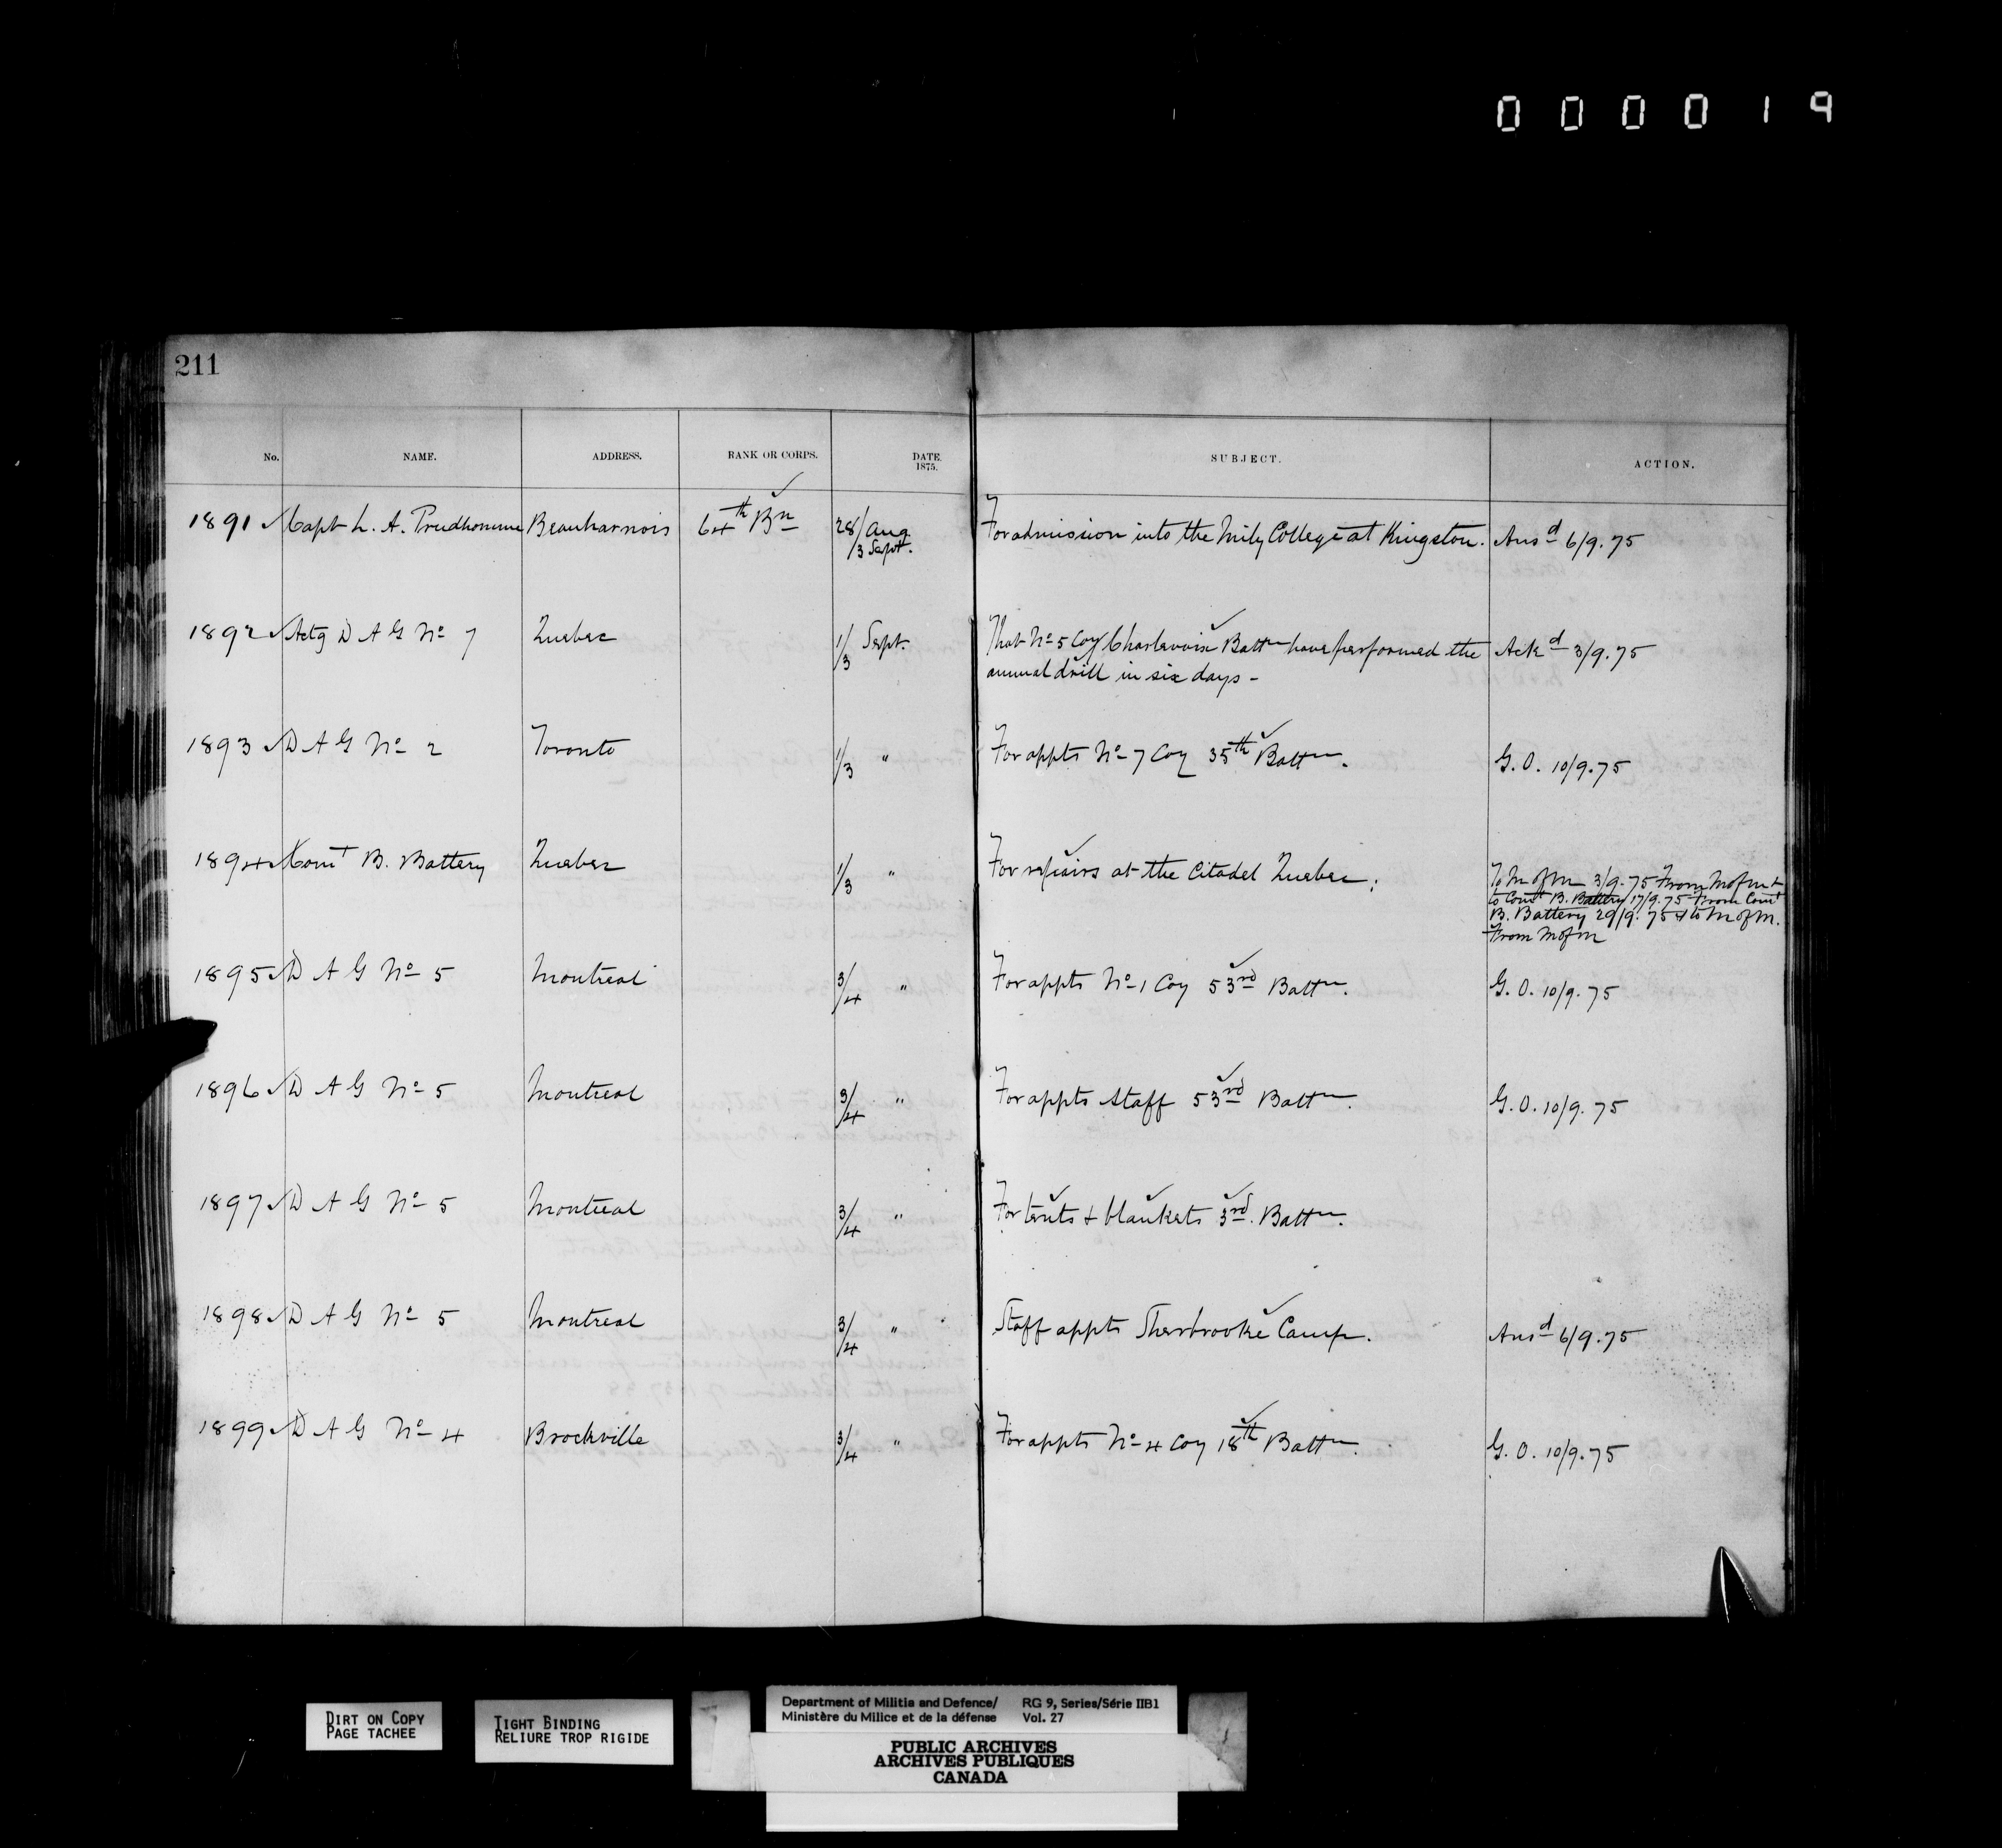 000019
211
No. NAME. ADDRESS. RANK OR CORPS. DATE. 1875. SUBJECT. ACTION.
1891 Capt L. A. Prudhomme Beauharnois 64th Bn 28/Aug For admission into the Mily College at Kingston. Ansd 6/9.75
/3 Sept.
1892 Actg D A G No 7 Quebec 1/3 Sept. That No 5 Coy Charlevoix Battn have performed the Ackd 3/9.75
annual drill in six days -
1893 D A G No 2 Toronto 1/3 " For appts No 7 Coy 35th Battn. G. O. 10/9.75
1894 Comt B. Battery Quebec 1/3 " For repairs at the Citadel Quebec. To M of M 3/9.75 From M of M &
to Comt B. Battery 17/9.75 From Comt
B. Battery 29/9.75 & to M of M.
From M of M
1895 D A G No 5 Montreal 3/4 " For appts No 1 Coy 53rd Battn. G. O. 10/9.75
1896 D A G No 5 Montreal 3/4 " For appts Staff 53rd Battn. G. O. 10/9.75
1897 D A G No 5 Montreal 3/4 " For tents & blankets 3rd. Battn.
1898 D A G No 5 Montreal 3/4 " Staff appts Sherbrooke Camp. Ansd 6/9.75
1899 D A G No 4 Brockville 3/4 " For appts No 4 Coy 18th Battn. G. O. 10/9.75
DIRT ON COPY
PAGE TACHEE
TIGHT BINDING
RELIURE TROP RIGIDE
Department of Militia and Defence/ RG 9, Series/Série IIB1
Ministère du Milice et de la défense Vol. 27
PUBLIC ARCHIVES
ARCHIVES PUBLIQUES
CANADA